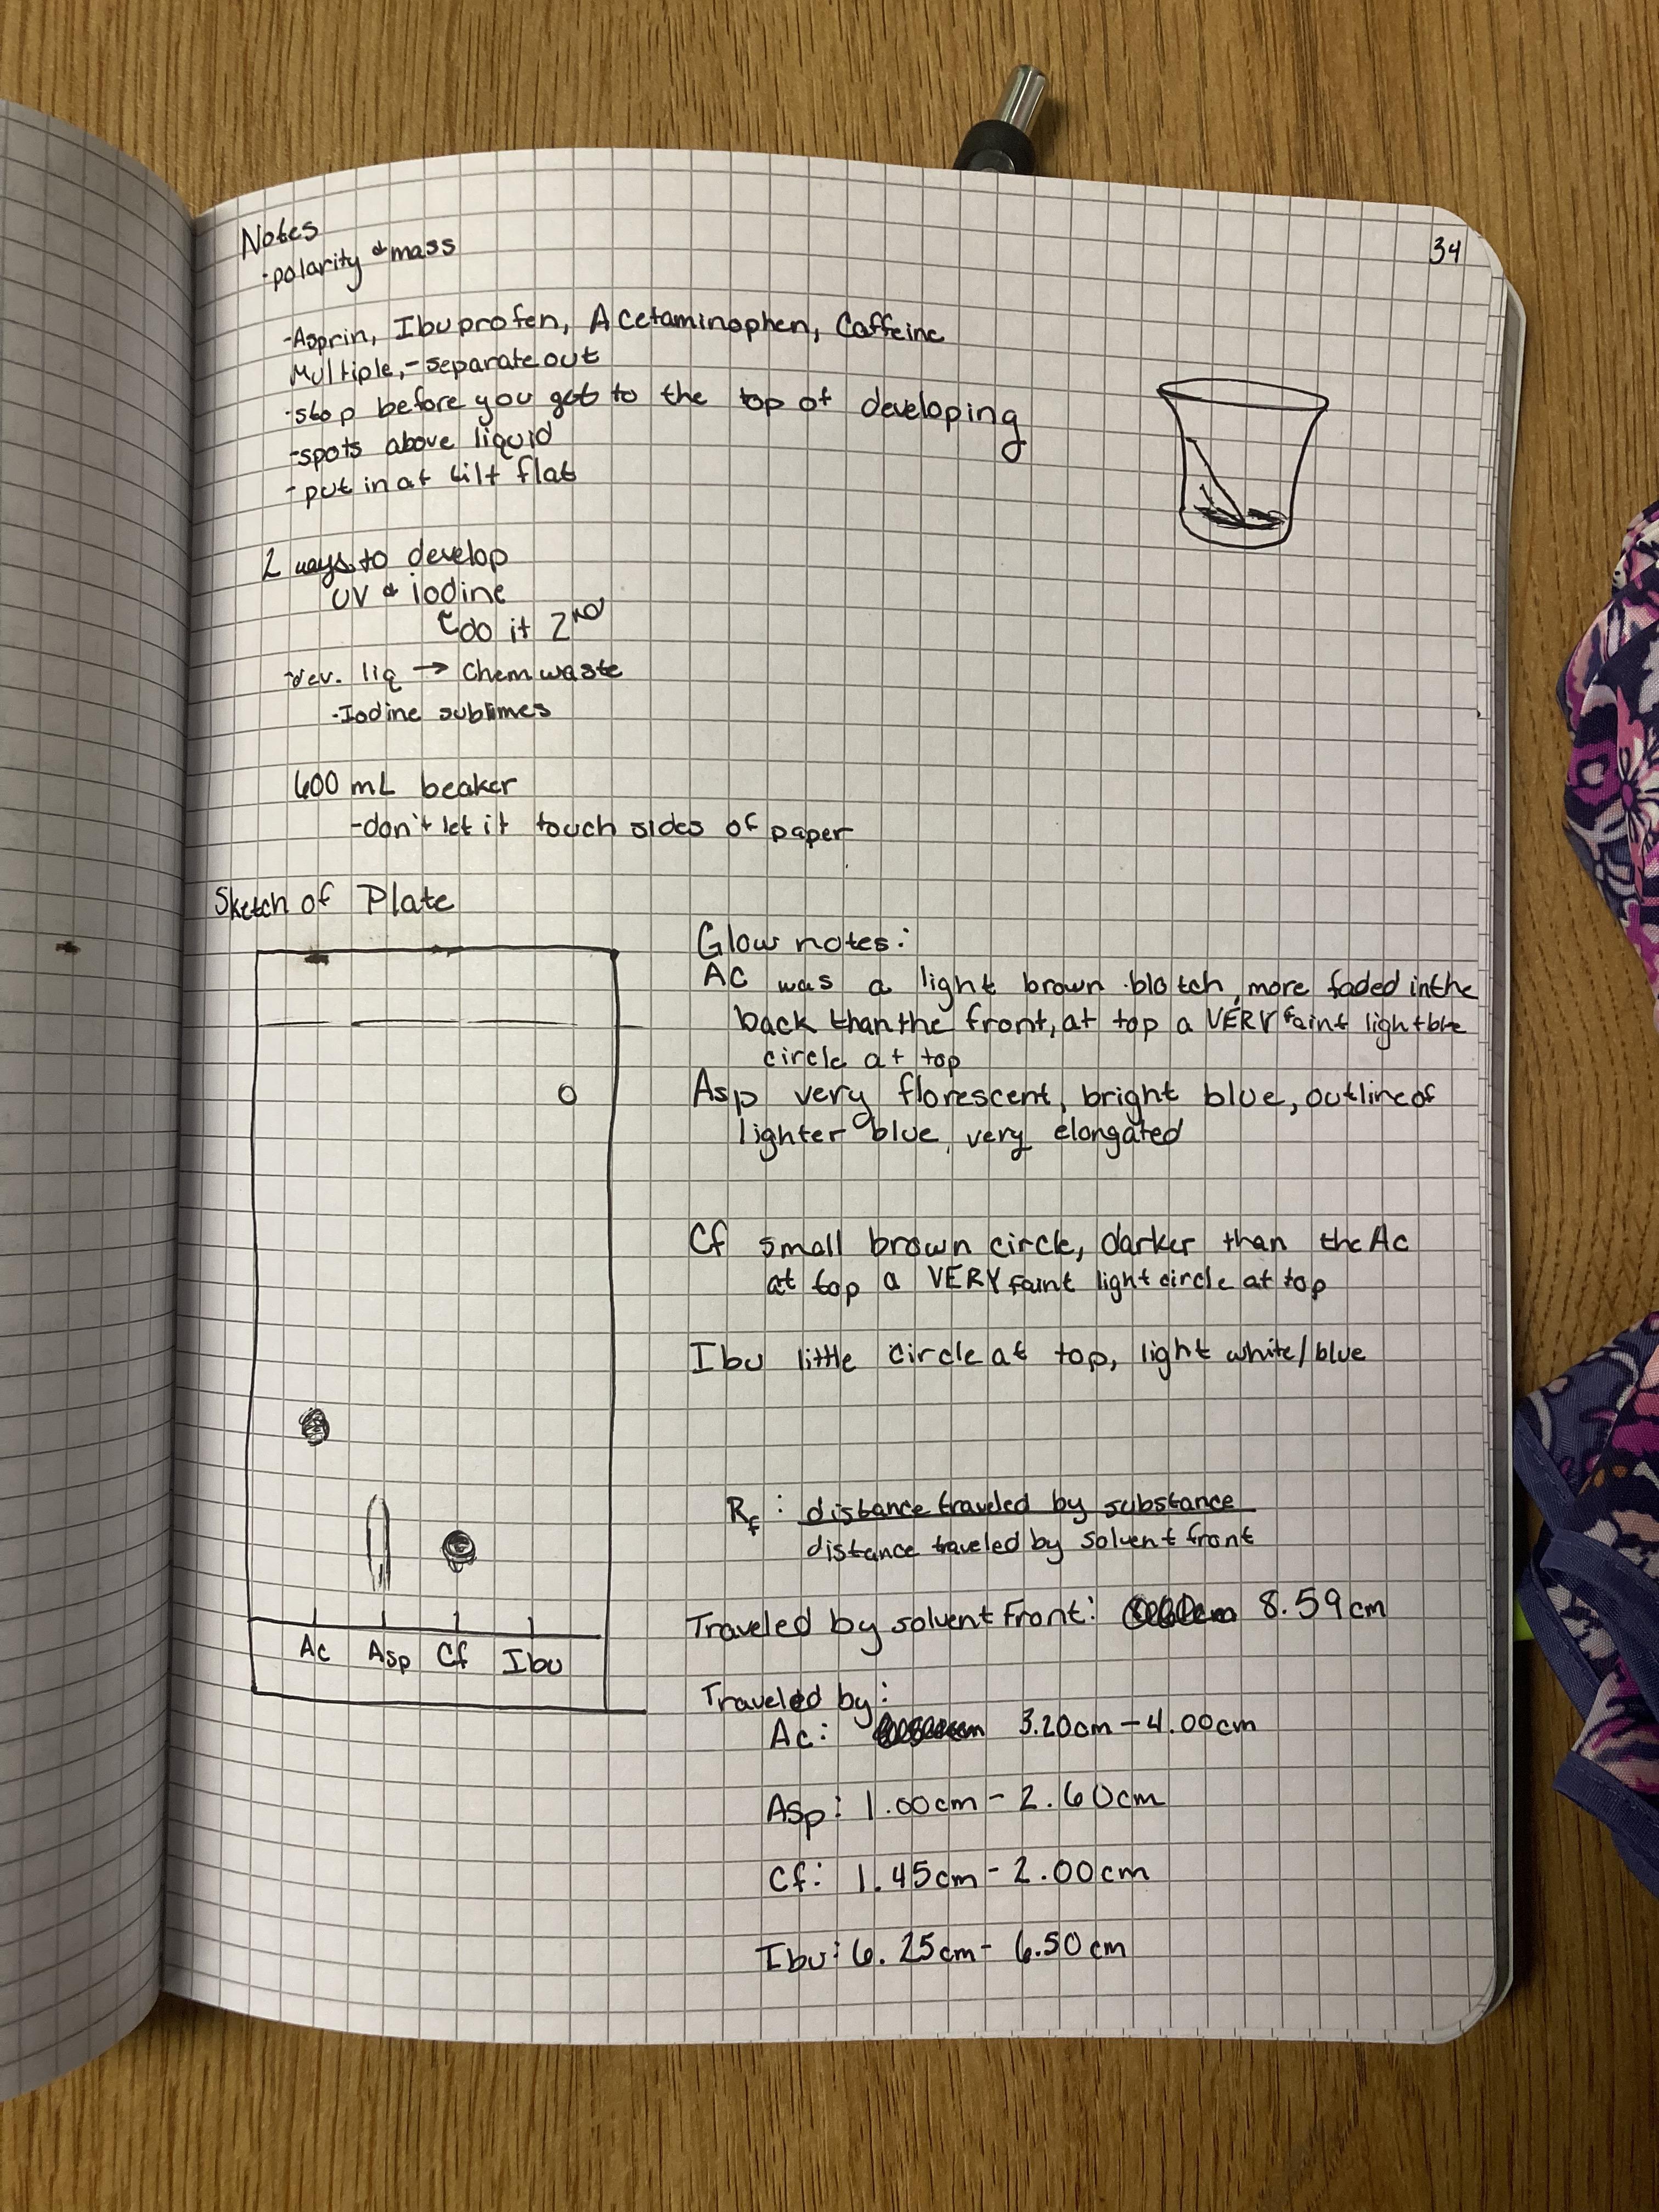 34
Notes
-polarity & mass
-Asprin, Ibuprofen, Acetaminophen, Caffeine
Multiple, - separate out
-stop before you get to the top of developing
-spots above liquid
-put in at tilt flat
2 ways to develop
UV & iodine
do it 2ND
-dev. liq → Chem waste
-Iodine sublimes
600 mL beaker
-don't let it touch sides of paper
Sketch of Plate
Ac Asp Cf Ibu
Glow notes:
AC was a light brown blotch, more faded in the
back than the front, at top a VERY faint light blue
circle at top
Asp very florescent, bright blue, outline of
lighter blue, very elongated
Cf small brown circle, darker than the Ac
at top a VERY faint light circle at top
Ibu little circle at top, light white/blue
Rf : distance traveled by substance
distance traveled by solvent front
Traveled by solvent front: 8.59cm
Traveled by:
Ac: 3.20cm - 4.00cm
Asp: 1.00cm - 2.60cm
Cf: 1.45cm - 2.00cm
Ibu: 6.25cm - 6.50cm